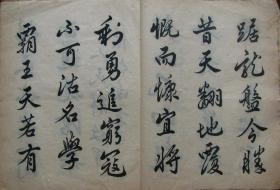 踞龍盤今勝
昔天翻地覆
慨而慷宜將
剩勇追窮寇
不可沽名學
霸王天若有